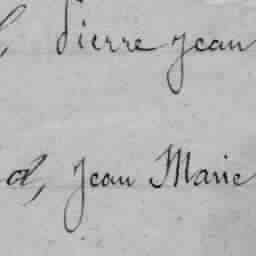 , Pierre Jean
d, Jean Marie